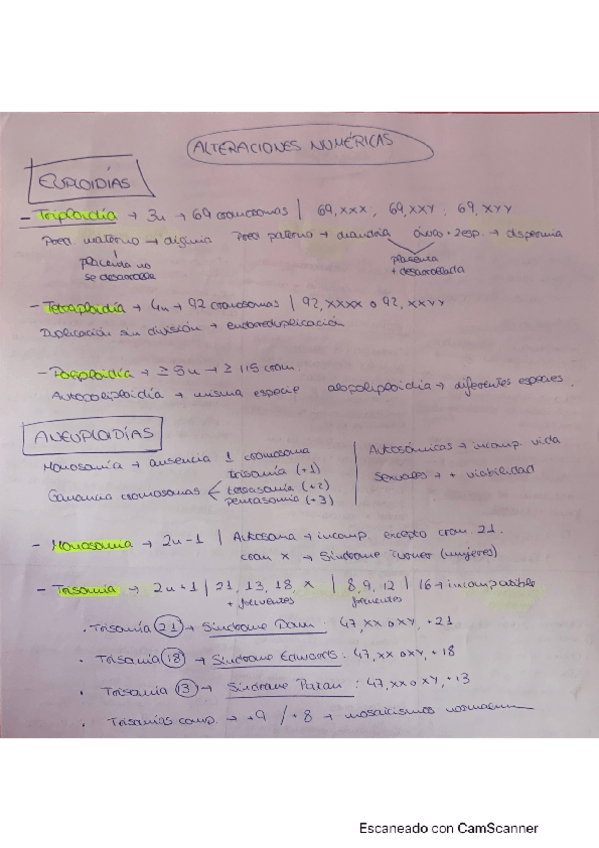 ALTERACIONES NUMÉRICAS
EUPLOIDÍAS
- Triploidía → 3n → 69 cromosomas | 69, XXX ; 69, XXY ; 69, XYY
Poral materno → diginia Poral paterno → diandria óvulo + 2esp. → dispermia
placenta no se desarrolla
placenta + desarrollada
- Tetraploidía → 4n → 92 cromosomas | 92, XXXX o 92, XXYY
Duplicación sin división → endoreduplicación
- Poliploidía → ≥ 5n → ≥ 115 crom.
Autopoliploidía → misma especie alopoliploidía → diferentes especies.
ANEUPLOIDÍAS
Monosomía → ausencia 1 cromosoma
Ganancia cromosomas
trisomía (+1)
tetrasomía (+2)
pentasomía (+3)
Autosómicas → incomp. vida
Sexuales → + viabilidad
- Monosomía → 2n-1 | Autosoma → incomp. excepto crom 21.
crom X → Síndrome Turner (mujeres)
- Trisomía → 2n+1 | 21, 13, 18, X | 8, 9, 12 | 16 → incompatible
+ frecuentes frecuentes
· Trisomía 21 → Síndrome Down : 47, XX o XY, +21
· Trisomía 18 → Síndrome Edwards : 47, XX o XY, +18
· Trisomía 13 → Síndrome Patau : 47, XX o XY, +13
· Trisomías comp. → +9 / +8 → mosaicismos normalm
Escaneado con CamScanner